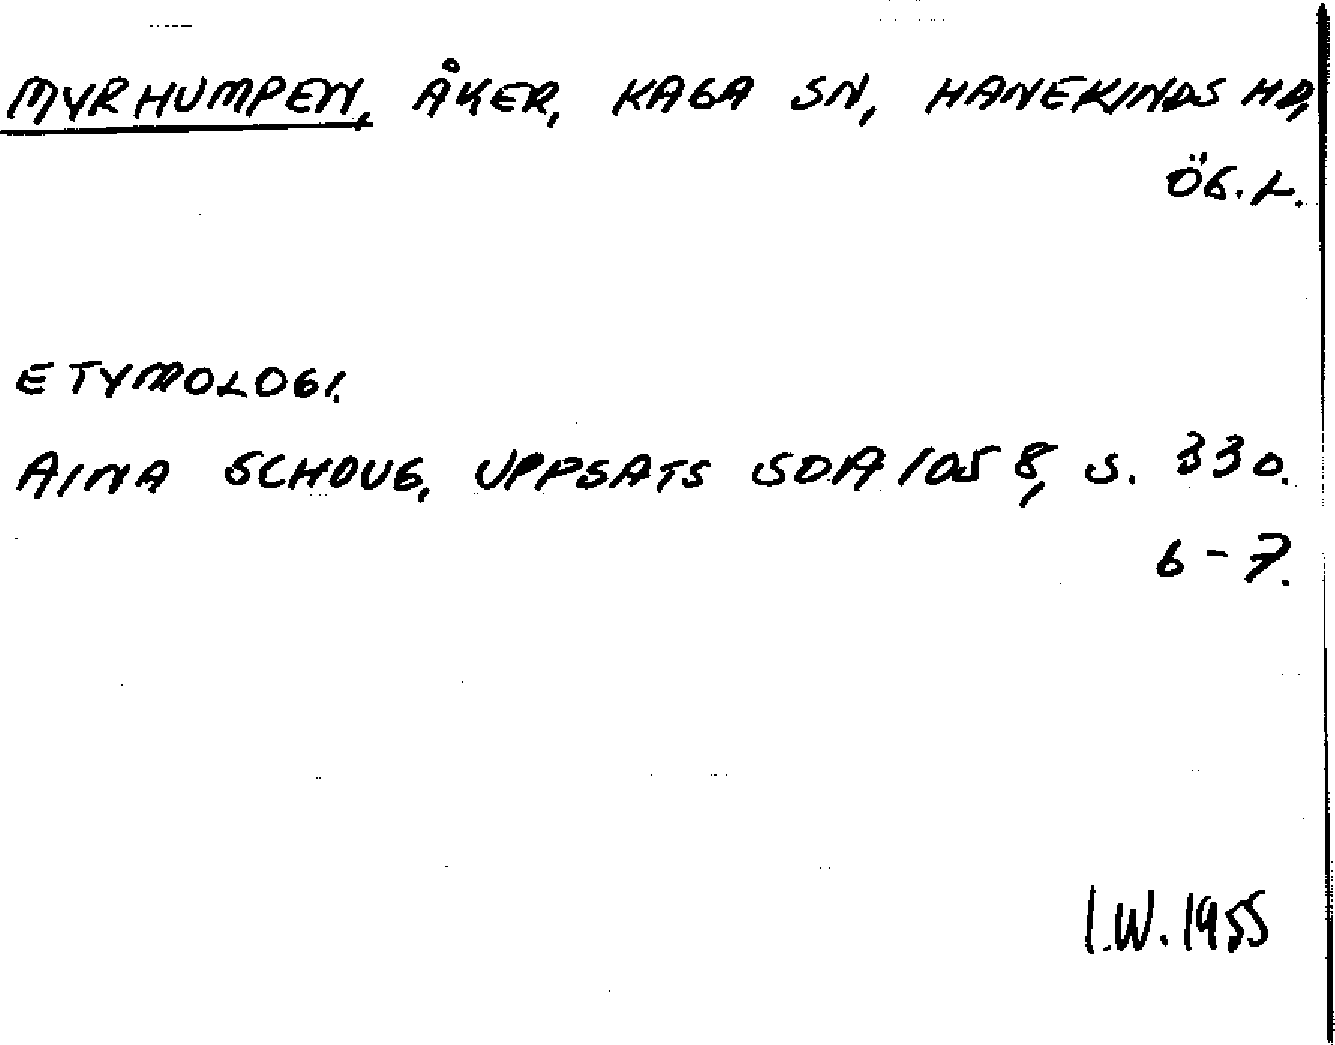 MYRHUMPEN, ÅKER, KAGA SN, HANEKINDS HD,
ÖG.L.
ETYMOLOGI.
AINA SCHOUG, UPPSATS SOA 1058, S. 330.
6-7.
I.W. 1955